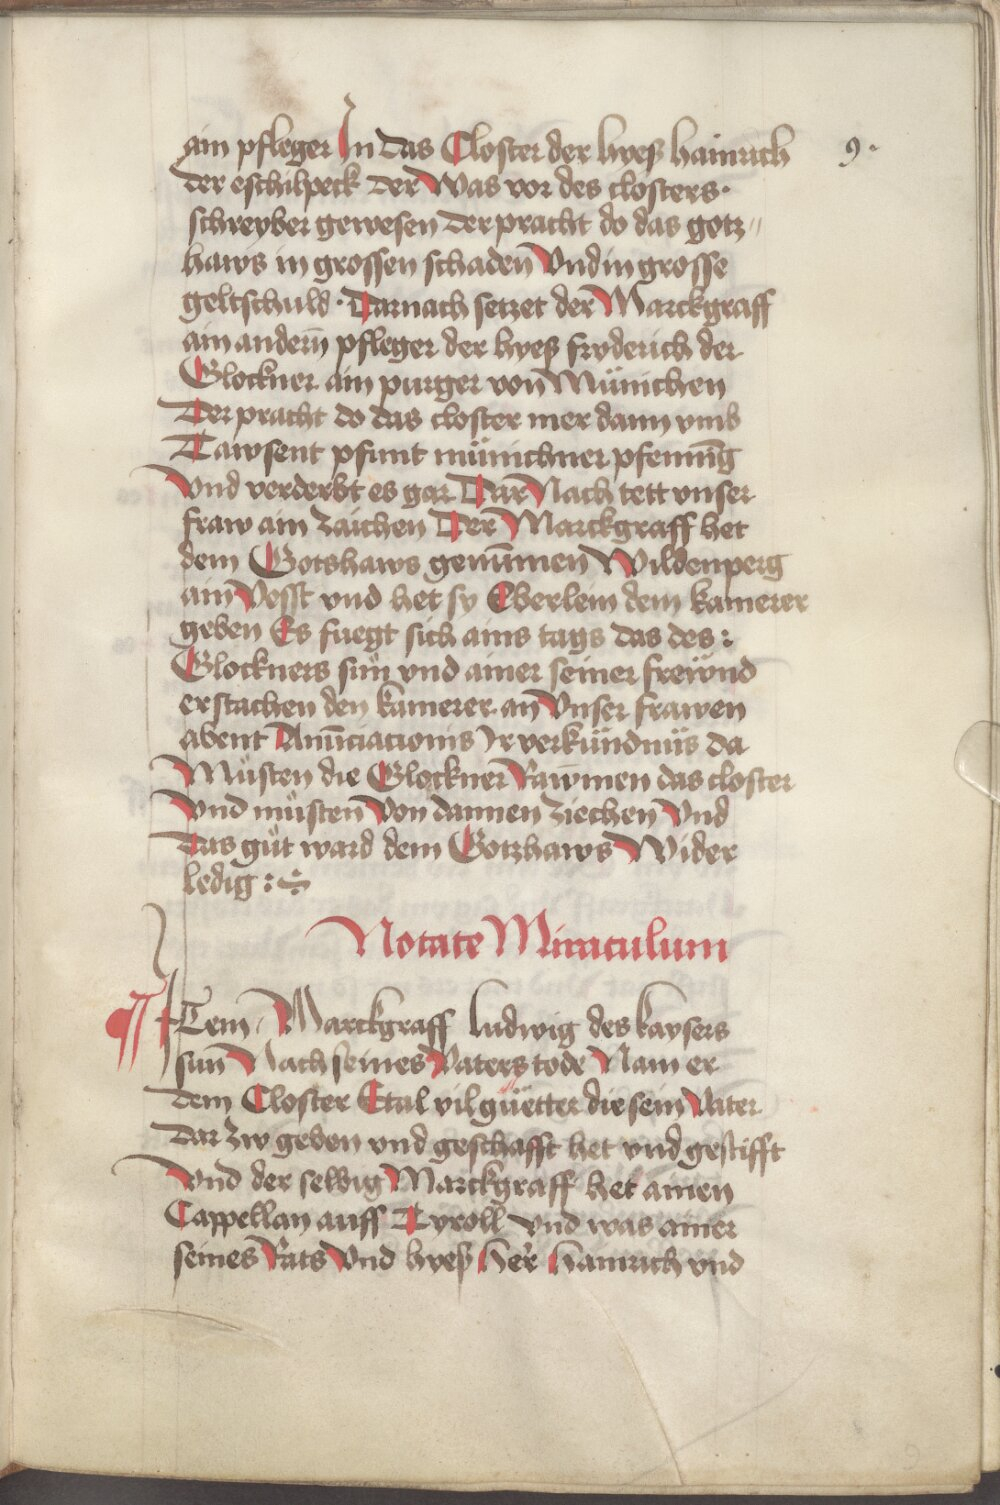 ain pfleger In das Closter der hyeß hainrich
9.
der eschilpeck Der Was vor des closters.
schreyber gewesen Der pracht do das gotz„
haws in grossen schaden Vnd in grosse
geltschuld. Darnach setzet der Marckgraff
ain andern̄ pfleger der hyeß fryderich der
Glockner ain purger von Münichen
Der pracht do das closter mer dann vmb
Tawsent pfunt münichner pfennīg
Vnd verderbt es gar Dar Nach tett vnser
fraw ain zaichen Der Marckgraff het
dem Gotshaws genūmen Wildenperg
ain Vesst vnd het sy Eberlein dem kamerer
geben Es fuegt sich ains tags das des :
Glockners sün vnd ainer seiner freünd
erstachen den kamerer an Vnser frawen
abent Anūciacionis Ir verkündnüs da
Müsten die Glockner Rawmen das closter
Vnd müsten Von dannen Ziechen Vnd
Das güt ward dem Gotzhaws Wider
ledig :
Notate Miraculum
¶ ITem Marckgraff Ludwig des kaysers
sun Nach seines Vaters tode Nam er
dem Closter Etal vil güetter die sein Vater
Dar zw geben vnd geschafft het vnd gestifft
Vnd der selbig Marckgraff het ainen
Cappellan auff Tyroll vnd was ainer
seines Rats Vnd hyeß Her Hainrich vnd